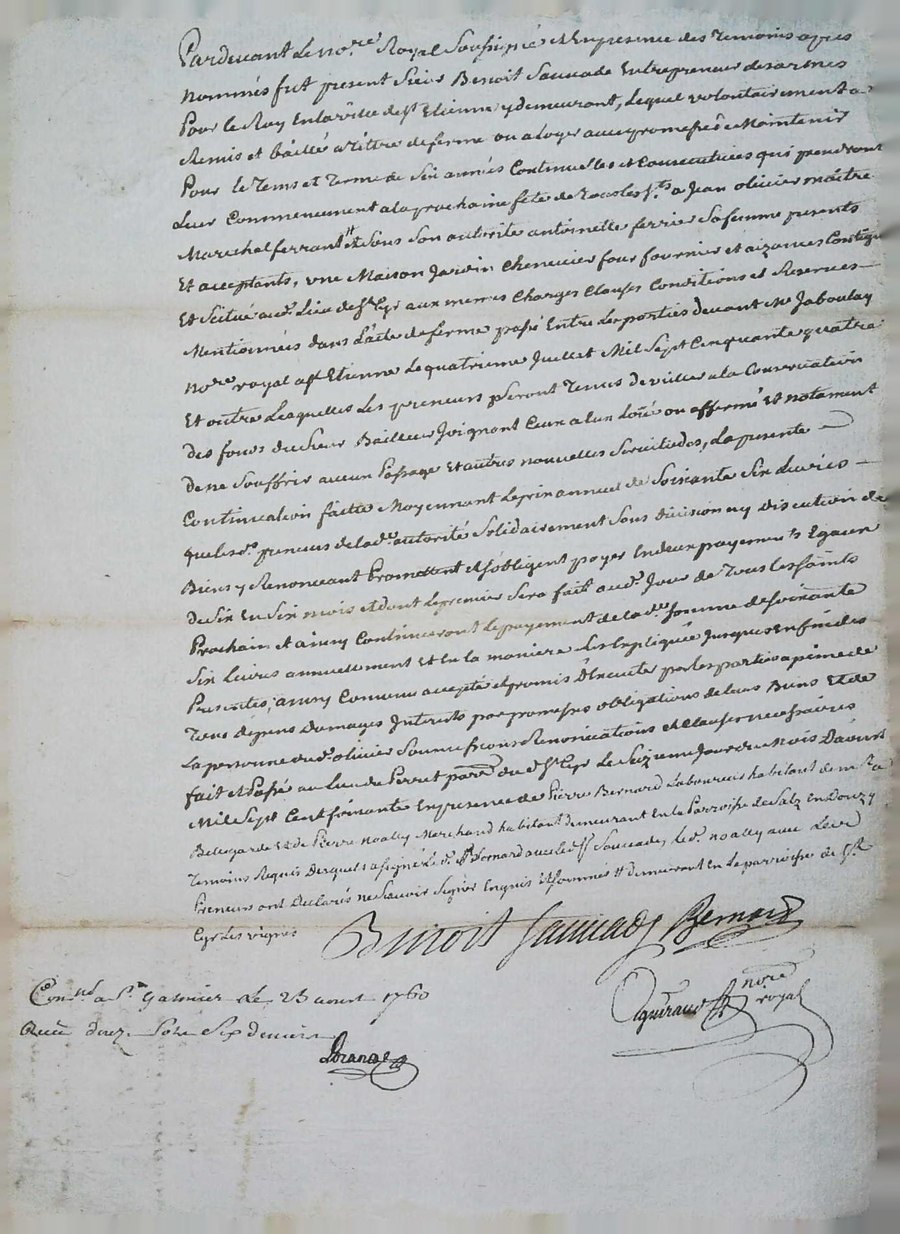 Pardevant Le no.re Royal Soussigné et En presence des Temoins apres
Nommés fut present Sieur Benoit Sauvade Entrepreneur des armes
Pour le Roy En la ville de St Etienne y demeurant, Lequel volontairement a
Remis et baillé a titre de ferme ou a loyer avec promesse de Maintenir
Pour le Tems et Terme de Six années Continuelles et Consecutives qui prendront
Leur Commencement a la prochaine fête de Tous les Sts a Jean olivier maitre
Marechal ferrant # et Sous Son autorité antoinette ferrier Sa femme presents
Et acceptants, une Maison Jardin Chenevier four fournier et aizances Contigu
Et Scitué aud. Lieu de St Cyr aux memes Charges Clauses Conditions et Reserves
Mentionnées dans L'acte de ferme passé Entre Les parties devant Me Jaboulay
no.re royal a St Etienne Le quatrieme Juillet Mil Sept Cinquante quatre
Et outre Lesquelles Les preneurs Seront Tenus de viller a la Conservation
des fonds du Sieur Bailleur Joignant Ceux a lui Loüé ou affermé Et notament
de ne Souffrir aucun Passage Et autres nouvelles Servitudes, La presente
Continuation faitte Moyennant Le prix annuel de Soixante Six Livres
que les d. preneurs de lad. autorité Solidairement Sans division ny discution de
Biens y Renonceant Promettent et S'obligent payer En deux payements Egaux
de Six En Six mois et dont Le premier Sera fait aud. Jour de Tous les Saints
Prochain et ainsy Continueront Le payement de la de. Somme de Soixante
Six Livres annuellement Et En la maniere Expliquée Jusques En fin des
Presentes, ainsy Convenu accepté et promis D'Executer par les parties a peine de
Tous dépens Domages Interets par promesses obligations de leurs Biens Et de
La personne dud. olivier Soumissions Renonciations et Clauses necessaires
fait et Passé au Lieu du Perret parsse du d. St Cyr Le Seizieme Jour du Mois D'aoust
Mil Sept Cent Soixante En presence de Pierre Bernard Laboureur habitant de
Bellegarde Et de Pierre noally Marchand habitant demeurant En la Parroisse de Salz En Donzy
Temoins Requis Desquels a Signé Le d. Bernard avec led. Sr Sauvade, Le d. noally avec Les d.
Preneurs ont Declarés ne Scavoir Signer Enquis Et Sommés # demeurant En La parroisse de St
Cyr Les vignes
Benoit Sauvade Bernard
no.re
royal
Con.llé a St galmier Le 23 aout 1760
Reçu douze Sols Six deniers